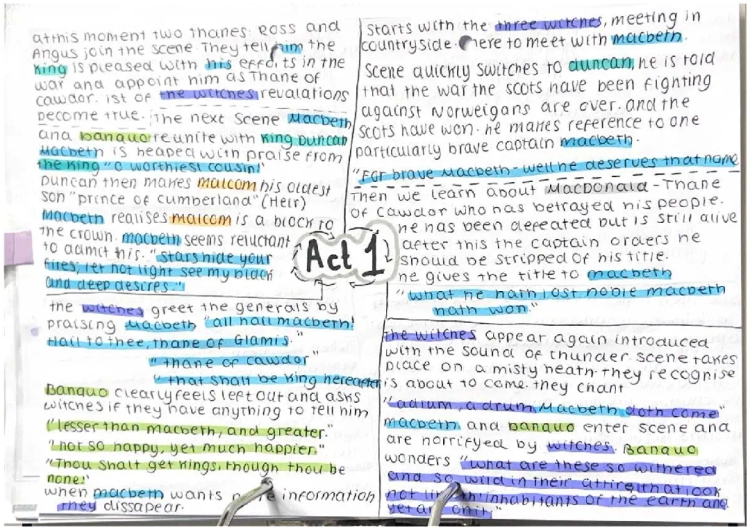 Act 1
Starts with the three witches, meeting in
countryside. here to meet with macbeth.
Scene quickly switches to duncan, he is told
that the war the scots have been fighting
against Norweigans are over. and the
scots have won. he makes reference to one
particularly brave captain macbeth.
"For brave Macbeth - well he deserves that name
Then we learn about MacDonald - Thane
of Cawdor who has betrayed his people.
he has been defeated but is still alive
after this the captain orders he
should be stripped of his title.
he gives the title to macbeth
"what he hath lost noble macbeth
hath won."
the witches appear again introduced
with the sound of thunder scene takes
place on a misty heath. they recognise
is about to come. they chant
"a drum, a drum, Macbeth doth come"
macbeth and banquo enter scene and
are horrifyed by witches. Banquo
wonders "what are these so withered
and so wild in their attire that look
not like inhabitants of the earth and
yet are on it"
the witches greet the generals by
praising Macbeth "all hail macbeth!
Hail to thee, thane of Glamis."
"thane of cawdor"
"that shalt be King hereafter
Banquo clearly feels left out and asks
witches if they have anything to tell him
"lesser than macbeth, and greater."
"not so happy, yet much happier."
"Thou shalt get kings, though thou be
none!"
when macbeth wants more information
they dissapear.
at this moment two thanes. Ross and
Angus join the scene. They tell him the
King is pleased with his efforts in the
war and appoint him as Thane of
cawdor. 1st of the witches revalations
become true. The next scene Macbeth
and banquo reunite with King Duncan
Macbeth is heaped with praise from
the King "O worthiest cousin!"
Duncan then makes malcom his oldest
son "prince of cumberland" (Heir)
Macbeth realises malcom is a block to
the crown. macbeth seems reluctant
to admit this. "stars hide your
fires, let not light see my black
and deep desires."